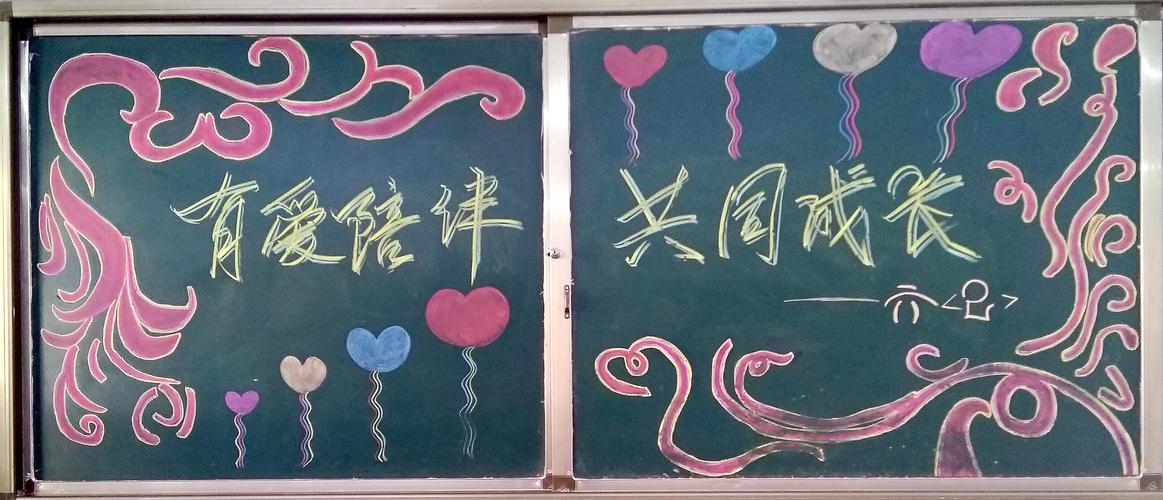 有爱陪伴 共同成长
——六